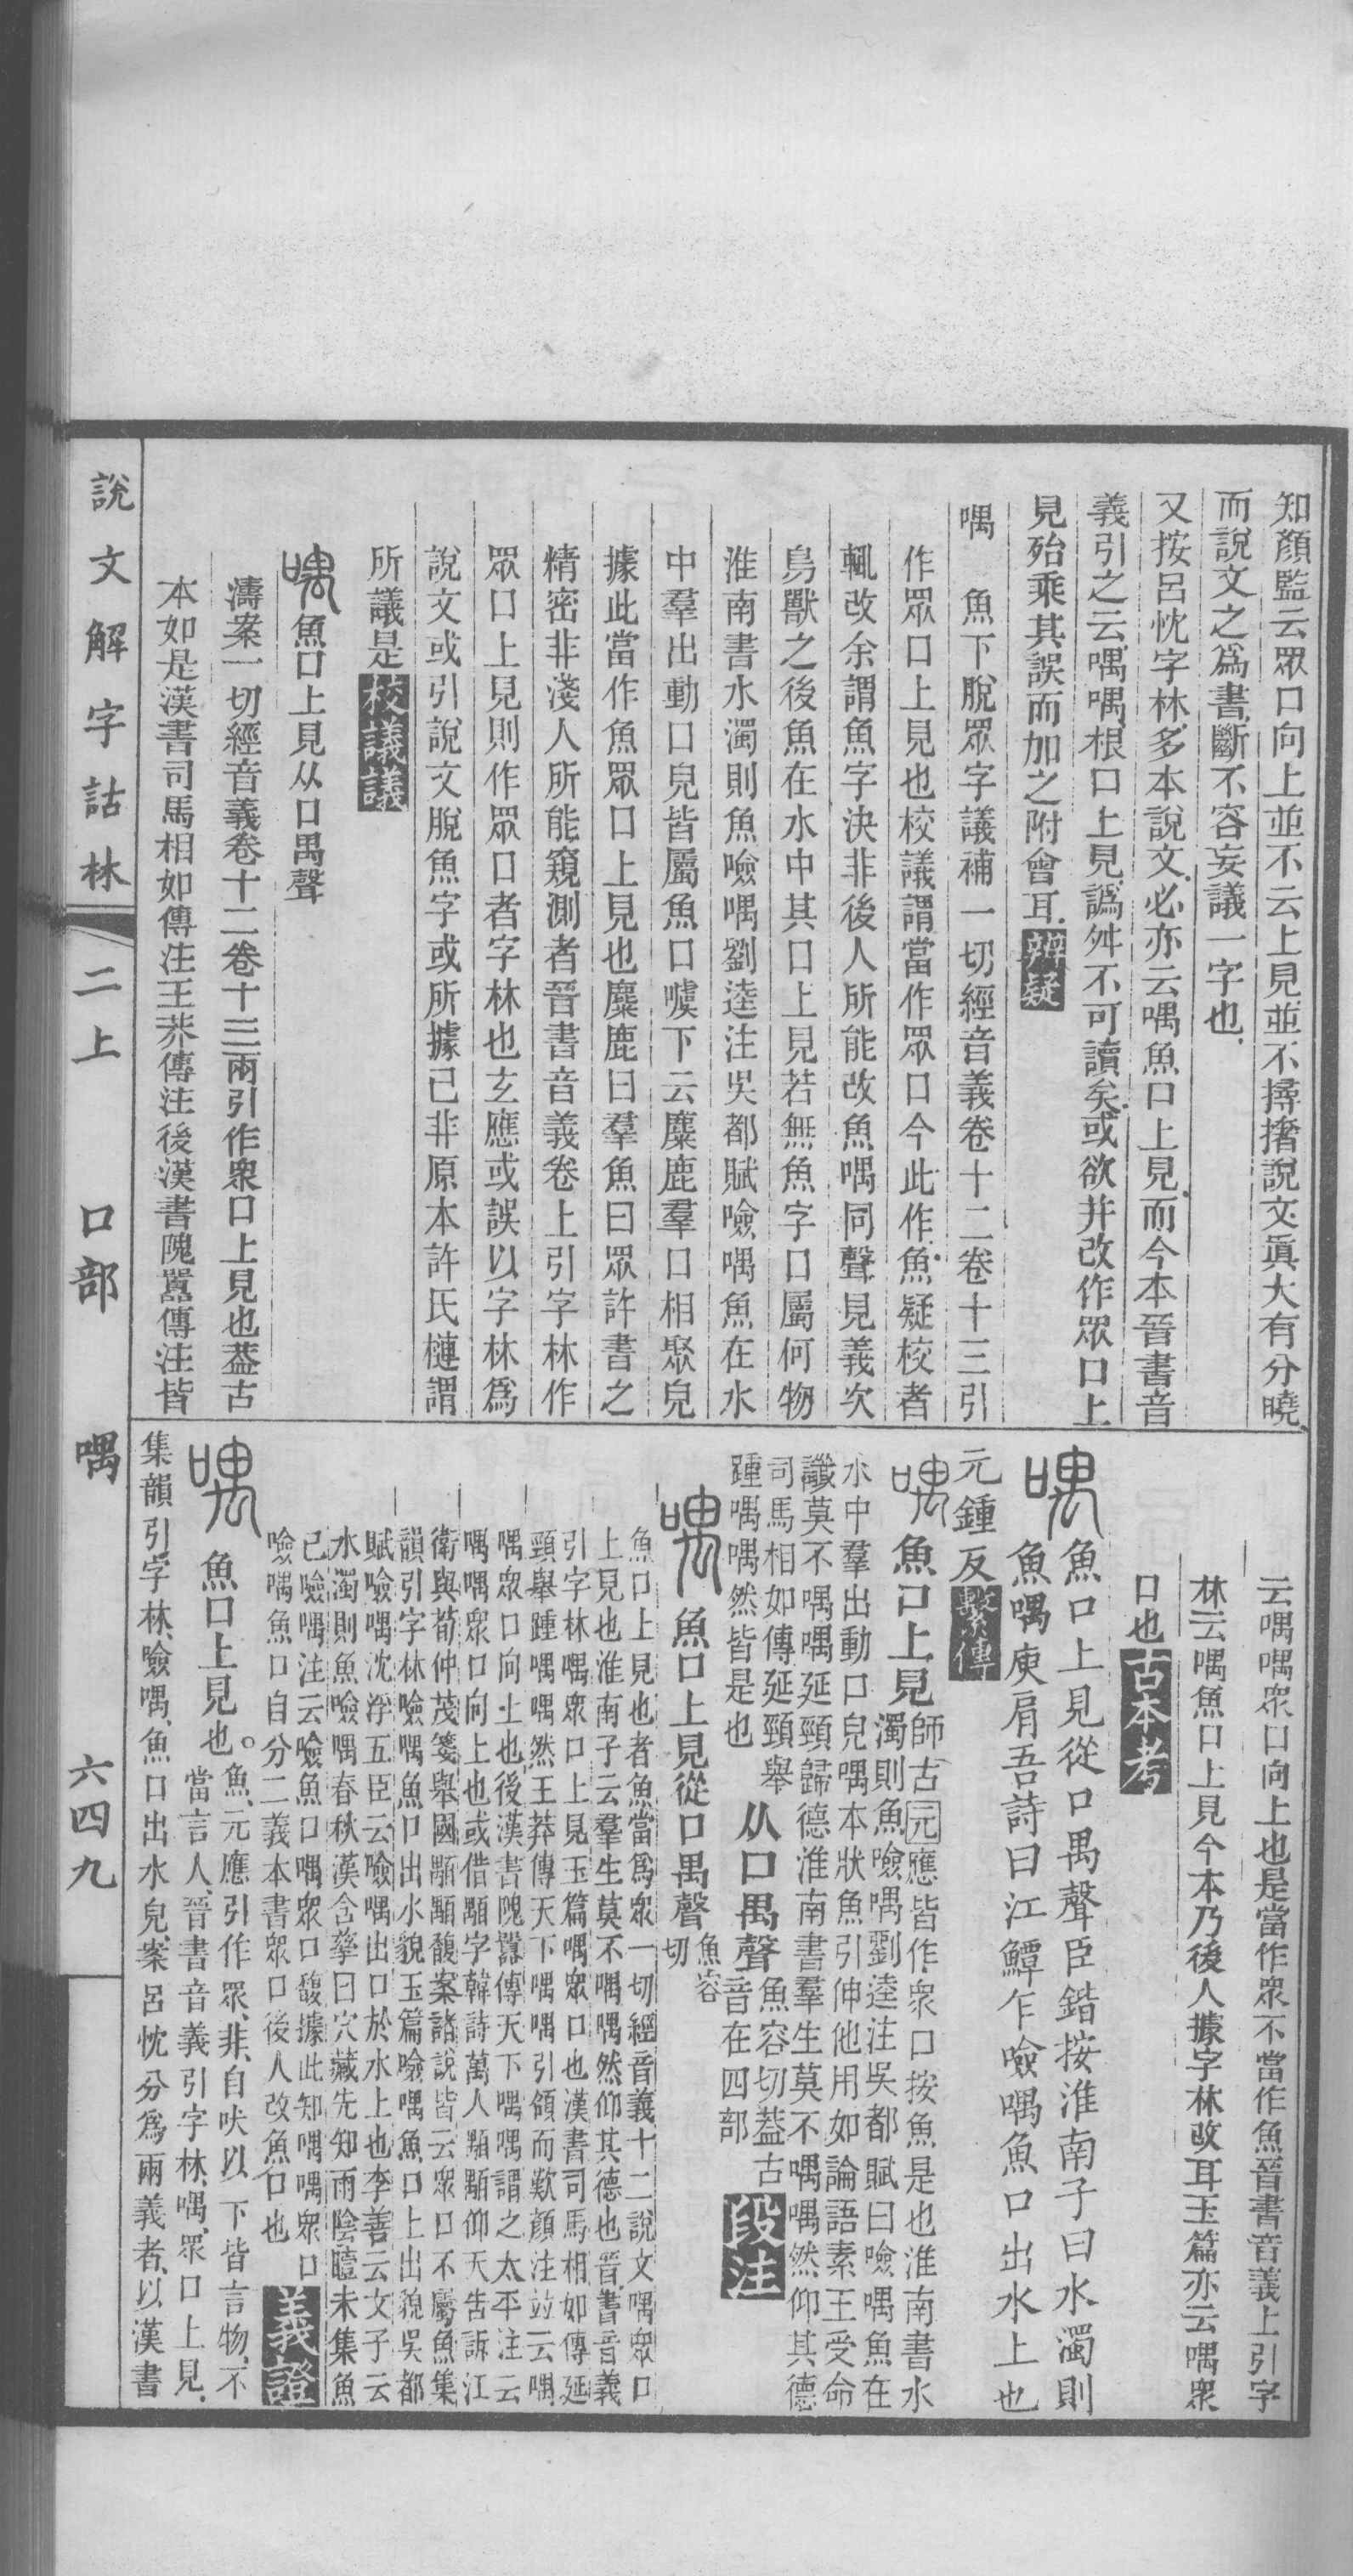 知顏監云眾口向上並不云上見並不撏撦說文眞大有分曉
而說文之爲書斷不容妄議一字也
又按呂忱字林多本說文必亦云喁魚口上見而今本晉書音
義引之云喁喁根口上見譌舛不可讀矣或欲幷改作眾口上
見殆乘其誤而加之附會耳辨疑
喁　魚下脫眾字議補一切經音義卷十二卷十三引
作眾口上見也校議謂當作眾口今此作魚疑校者
輒改余謂魚字決非後人所能改魚喁同聲見義次
鳥獸之後魚在水中其口上見若無魚字口屬何物
淮南書水濁則魚噞喁劉逵注吳都賦噞喁魚在水
中羣出動口皃皆屬魚口噳下云麋鹿羣口相聚皃
據此當作魚眾口上見也麋鹿曰羣魚曰眾許書之
精密非淺人所能窺測者晉書音義卷上引字林作
眾口上見則作眾口者字林也玄應或誤以字林爲
說文或引說文脫魚字或所據已非原本許氏槤謂
所議是校議議
喁魚口上見从口禺聲
濤案一切經音義卷十二卷十三兩引作衆口上見也葢古
本如是漢書司馬相如傳注王莽傳注後漢書隗囂傳注皆
云喁喁衆口向上也是當作衆不當作魚晉書音義上引字
林云喁魚口上見今本乃後人據字林改耳玉篇亦云喁衆
口也古本考
喁魚口上見從口禺聲臣鍇按淮南子曰水濁則
魚喁庾肩吾詩曰江鱏乍噞喁魚口出水上也
元鍾反繫傳
喁魚口上見師古元應皆作衆口按魚是也淮南書水
濁則魚噞喁劉逵注吳都賦曰噞喁魚在
水中羣出動口皃喁本狀魚引伸他用如論語素王受命
讖莫不喁喁延頸歸德淮南書羣生莫不喁喁然仰其德
司馬相如傳延頸舉
踵喁喁然皆是也从口禺聲魚容切葢古
音在四部段注
喁魚口上見從口禺聲魚容
切
魚口上見也者魚當爲衆一切經音義十二說文喁衆口
上見也淮南子云羣生莫不喁喁然仰其德也晉書音義
引字林喁衆口上見玉篇喁衆口也漢書司馬相如傳延
頸舉踵喁喁然王莽傳天下喁喁引領而歎顏注竝云喁
喁衆口向上也後漢書隗囂傳天下喁喁謂之太平注云
喁喁衆口向上也或借顒字韓詩萬人顒顒仰天告訴江
衛與荀仲茂箋舉國顒顒馥案諸說皆云衆口不屬魚集
韻引字林噞喁魚口出水貌玉篇噞喁魚口上出貌吳都
賦噞喁沈浮五臣云噞喁出口於水上也李善云文子云
水濁則魚噞喁春秋漢含孳曰穴藏先知雨陰曀未集魚
已噞喁注云噞魚口喁衆口馥據此知喁喁衆口
噞喁魚口自分二義本書衆口後人改魚口也義證
喁魚口上見也。魚元應引作眾非自吠以下皆言物不
當言人晉書音義引字林喁眾口上見
集韻引字林噞喁魚口出水皃案呂忱分爲兩義者以漢書
說文解字詁林　二上　口部　喁　六四九